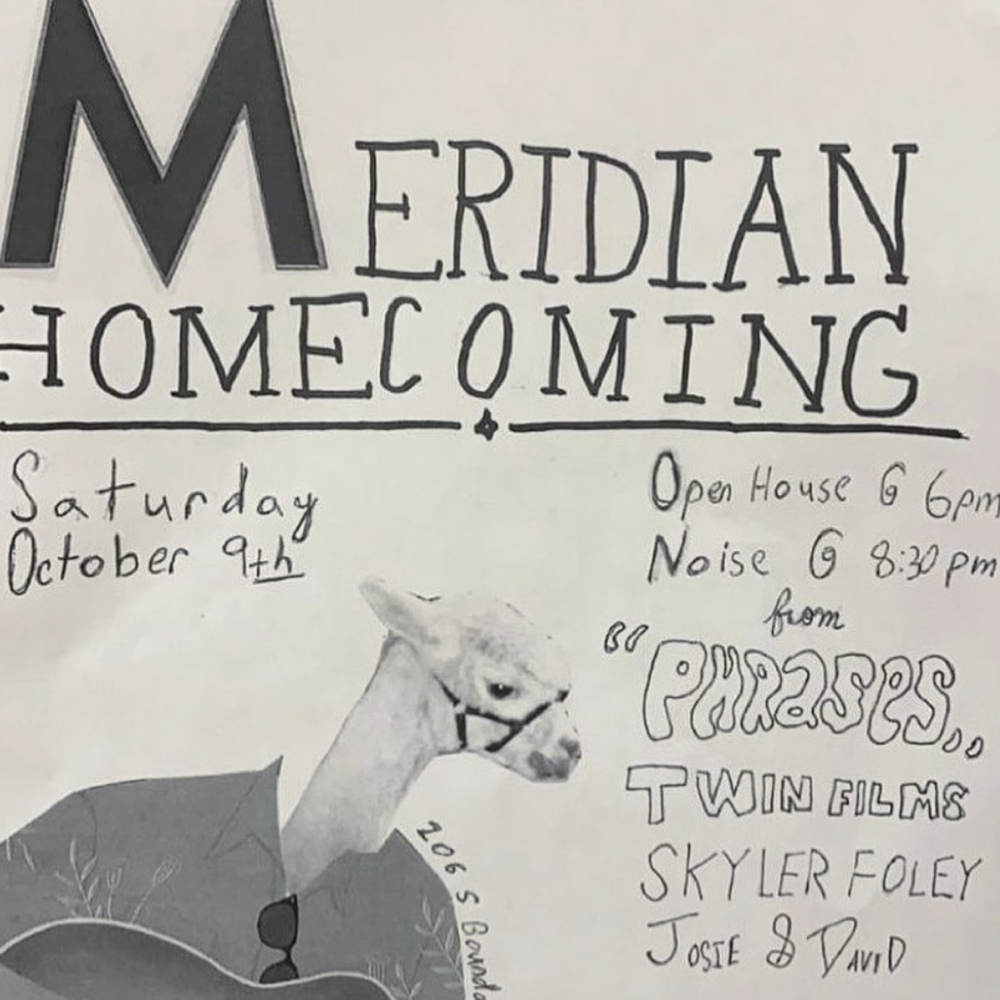 MERIDIAN
HOMECOMING
Saturday
October 9th
Open House @ 6pm
Noise @ 8:30pm
from
"PHRASES,,
TWIN FILMS
SKYLER FOLEY
JOSIE & DAVID
206 S